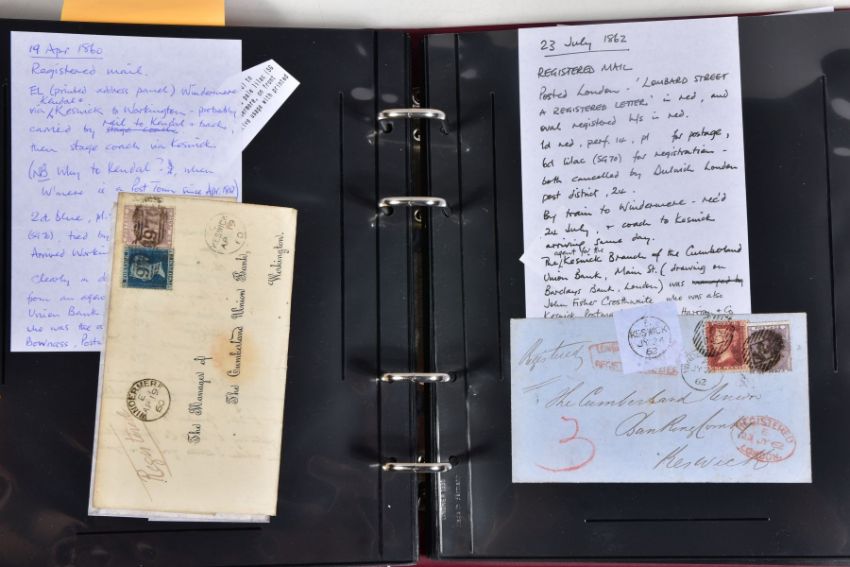 19 Apr 1860
Registered mail.
EL (printed address panel) Windermere
Kendal +
via Keswick to Workington - probably
carried by mail to Kendal + back,
then stage coach via Keswick
(NB Why to Kendal? when
W'mere is a Post Town since Apr.
2d blue, pl.
tied by
Arrived Working
Clearly
from an agent
Union Bank
who was the
Bowness, Posta
pale lilac (SG
on front
usage with printed
KESWICK
AP 19
60
WINDERMERE
E
AP 19
60
Registered
The Manager of
The Cumberland Union Bank,
Workington.
23 July 1862
REGISTERED MAIL
Posted London - 'LOMBARD STREET
A REGISTERED LETTER' in red, and
oval registered h/s in red.
1d red, perf. 14, pl for postage,
6d lilac (SG70) for registration -
both cancelled by Dulwich London
post district, 24.
By train to Windermere - rec'd
24 July, + coach to Keswick
arriving same day.
agent for the
The Keswick Branch of the Cumberland
Union Bank, Main St. (drawing on
Barclays Bank, London) was managed by
John Fisher Crosthwaite who was also
Keswick Postma
KESWICK
JY 24
62
Registered
The Cumberland Union
Banking Comp
Keswick
3
REGISTERED
E
JY 62
LONDON